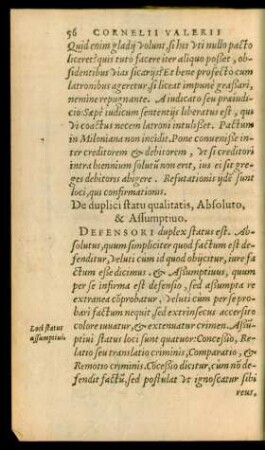 56 CORNELII VALERII
Quid enim gladij volunt, si his vti nullo pacto
liceret? quis tuto facere iter aliquo posset, ob-
sidentibus vias sicarijs? Et bene profectò cum
latronibus ageretur, si liceat impunè grassari,
nemine repugnante. A iudicato seu præiudi-
cio: Sæpè iudicum sententijs liberatus est, qui
vi coactus necem latroni intulisset. Pactum
in Miloniana non incidit. Pone conuenisse in-
ter creditorem & debitorem, vt si creditori
intra biennium solutũ non erit, ius ei sit gre-
ges debitoris abigere. Refutationis ijdẽ sunt
loci, qui confirmationis.
De duplici statu qualitatis, Absoluto,
& Assumptiuo.
DEFENSORI duplex status est. Ab-
solutus, quum simpliciter quod factum est de-
fenditur, veluti cum id quod obijcitur, iure fa-
ctum esse dicimus. & Assumptiuus, quum
per se infirma est defensio, sed assumpta re
extranea cõprobatur, veluti cum per se pro-
bari factum nequit, sed extrinsecus accersito
colore iuuatur, & extenuatur crimen. Assũ-
Loci status
assumptiui.
ptiui status loci sunt quatuor: Concessio, Re-
latio seu translatio criminis, Comparatio, &
Remotio criminis. Cõcessio dicitur, cùm nõ de-
fendit factũ, sed postulat vt ignoscatur sibi
reus,